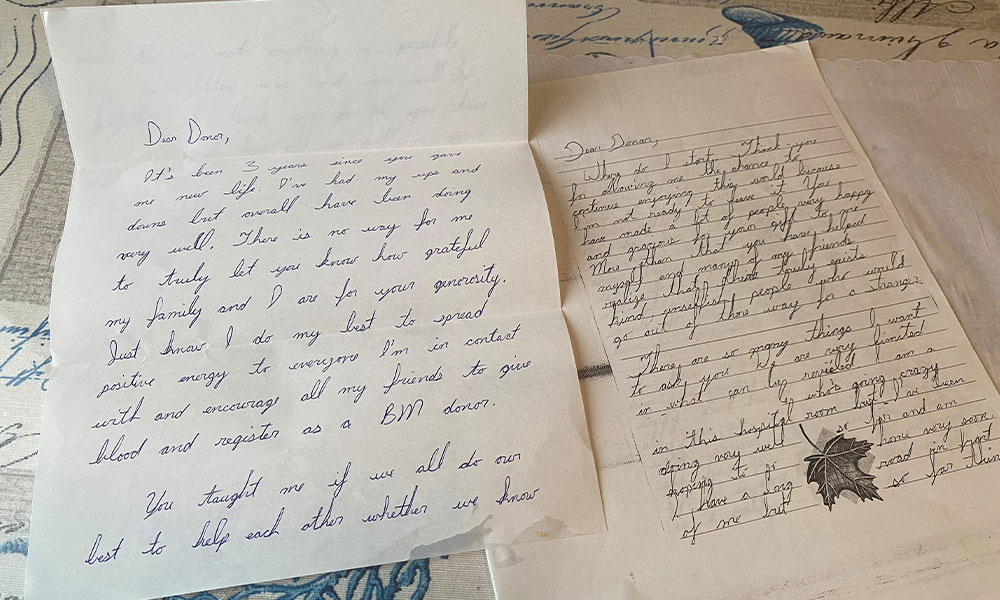 Dear Donor,
It's been 3 years since you gave
me new life. I've had my ups and
downs but overall have been doing
very well. There is no way for me
to truly let you know how grateful
my family and I are for your generosity.
Just know I do my best to spread
positive energy to everyone I'm in contact
with and encourage all my friends to give
blood and register as a BM donor.
You taught me if we all do our
best to help each other whether we know
Dear Donor,
Where do I start. Thank you
for allowing me the chance to
continue enjoying this world because
I'm not ready to leave it. You
have made a lot of people very happy
and gracious for your gift to me.
More than that you have helped
myself and many of my friends
realize that there truly exists
kind, unselfish people who would
go out of there way for a stranger.
There are so many things I want
to ask you. We are very limited
in what can be revealed. I am a
who's going crazy
in this hospital room but I've been
doing very well so far and am
hoping to go home very soon.
I have a long road in front
of me but so far